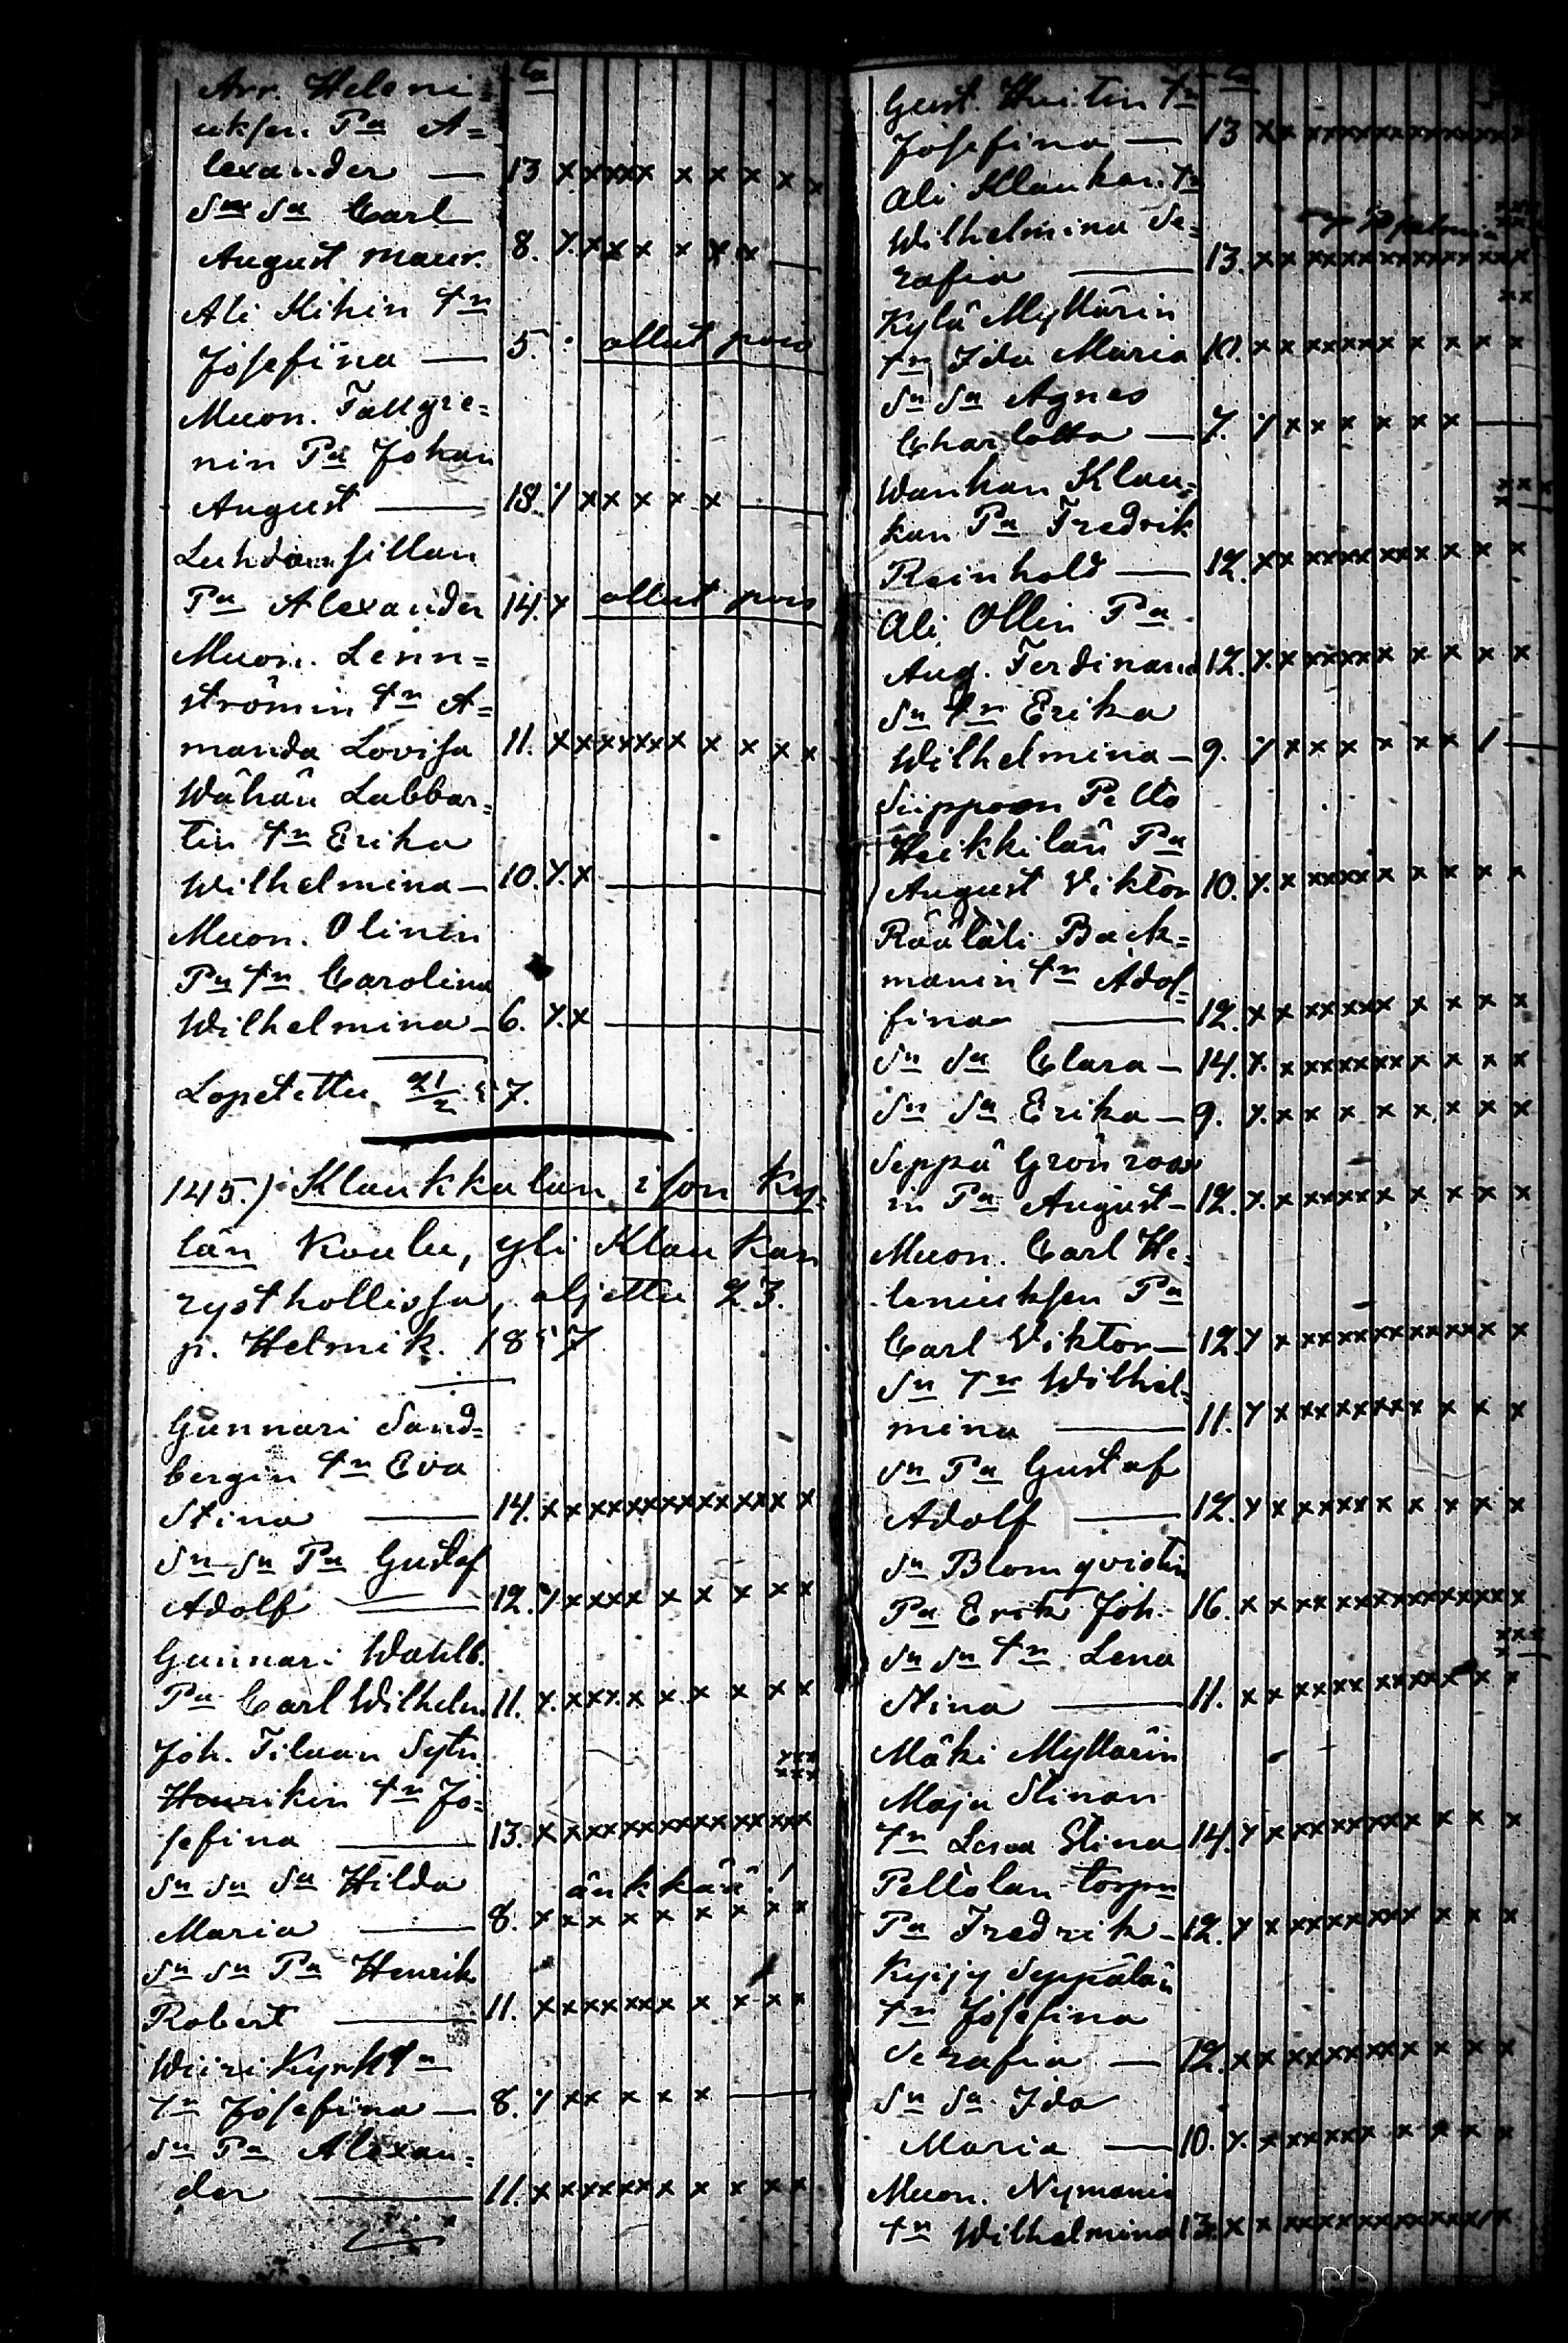 Arr. Heleni= ta
uksen Pa A=
lexander — 13 x x x x x x x x x x
Sn Sa Carl
August Maur. 8. x x x x x x x —
Ali Kihin Tr
Josefina — 5. ollut pois
Muon. Tallgre=
nin Pa Johan
August — 13. x x x x x x —
Luhdansillan
Pa Alexander 14. x ollut pois
Muon. Lenn=
strömin Tr A=
manda Lovisa 11. x x x x x x x x x x x
Wähän Labbar=
tin Tr Erika
Wilhelmina — 10. x x —
Muon. Olinin
Pn Tr Carolina
Wilhelmina — 6. x x —
Lopetettu 21/2 57.
145.) Klaukkalan ison ky=
län koulu, yli Klaukan
rysthollissa, aljettu 23.
p. Helmik. 1857
Gunnari Sand=
bergin Tr Eva
Stina — 14. x x x x x x x x x x x x x x
Sn Sn Pa Gustaf
Adolf — 12. x x x x x x x x x x
Gunnari Wahlb.
Pa Carl Wilhelm 11. x x x x x x x x x x
Joh. Tiluan Sytn xxx
Henrikin Tr Jo= xxx
sefina — 13. x x x x x x x x x x x x x x
Sn Sn Sa Hilda änkkää!
Maria — 8. x x x x x x x x x
Sn Sn Pa Henrik
Robert — 11. x x x x x x x x x x x
Wiiri
Tr Josefina — 8. x x x x x x —
Sn Pa Alexan=
der — 11. x x x x x x x x x x x
Gust. Huitin Tr ta
Josefina — 13 x x x x x x x x x x x x x x
Ali Klaukan Tr
Wilhelmina Se= xxx
rafia — 13. x x x x x x x x x x x x x x
Kylä Myllärin xx
Tr Ida Maria 10. x x x x x x x x x x x
Sn Sa Agnes
Charlotta — 7. x x x x x x x —
Wanhan Klau= xxx
kan Pa Fredrik x
Reinhold — 12. x x x x x x x x x x x x x
Ali Ollin Pa
Aug. Ferdinand 12. x x x x x x x x x x x
Sn Tr Erika
Wilhelmina — 9. x x x x x x x / —
Siippoon Pelto
Heikkilän Pa
August Viktor 10. x x x x x x x x x x x
Räätäli Back=
manin Tr Adol=
fina — 12. x x x x x x x x x x x x
Sn Sa Clara — 14. x x x x x x x x x x x x
Sn Sa Erika — 9. x x x x x x x x x
Seppä Grönroos
in Pa August — 12. x x x x x x x x x x x
Muon. Carl He=
leniuksen Pa
Carl Viktor — 12. x x x x x x x x x x x x x x
Sn Tr Wilhel=
mina — 11. x x x x x x x x x x x x
Sn Pa Gustaf
Adolf — 12. x x x x x x x x x x x
Sn Blomqvistin
Pa Erik Joh. — 16. x x x x x x x x x x x x x x
Sn Sn Tr Lena xxx
Stina — 11. x x x x x x x x x x x x x
Mäki Myllärin
Maja Stinan
Tr Lena Stina 14. x x x x x x x x x x x x
Pellolan torpn
Pa Fredrik — 12. x x x x x x x x x x x x
Kyijy Seppälän
Tr Josefina
Serafia — 12. x x x x x x x x x x x x
Sn Sa Ida
Maria — 10. x x x x x x x x x x x
Muon. Nymanin
Tr Wilhelmina 13. x x x x x x x x x x x x x